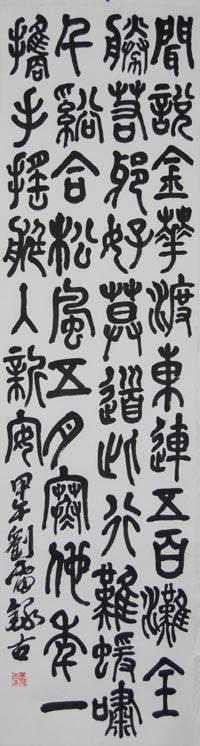 聞說金華渡東連五百灘全
勝若耶好莫道此行難蝯嘯
千谿合松風五月寒他年一
攜手搖艇入新安甲午劉雷錄古